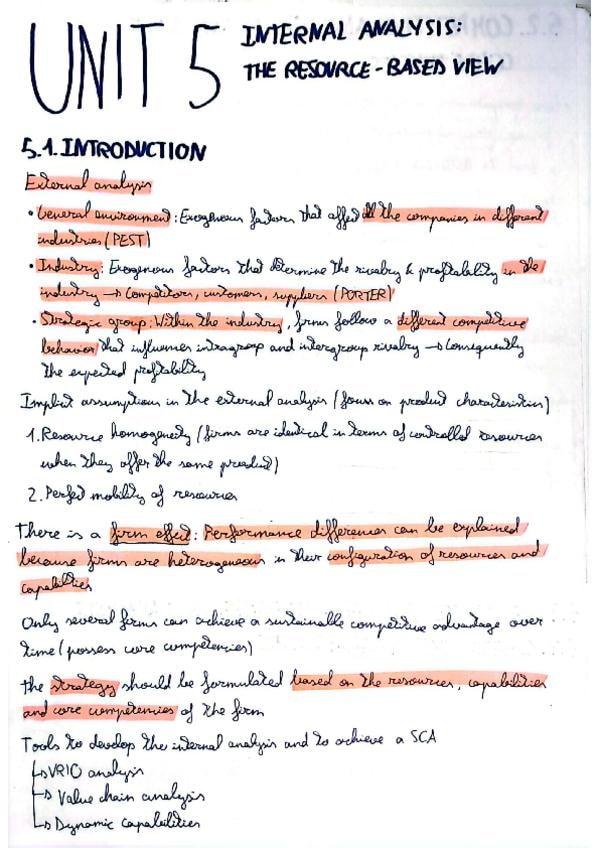 UNIT 5 INTERNAL ANALYSIS:
THE RESOURCE-BASED VIEW
5.1. INTRODUCTION
External analysis
• General environment: Exogenous factors that affect all the companies in different
industries (PEST)
• Industry: Exogenous factors that determine the rivalry & profitability in the
industry → Competitors, customers, suppliers (PORTER)
• Strategic group: Within the industry, firms follow a different competitive
behavior that influences intragroup and intergroup rivalry → Consequently
the expected profitability
Implicit assumptions in the external analysis (focus on product characteristics)
1. Resource homogeneity (firms are identical in terms of controlled resources
when they offer the same product)
2. Perfect mobility of resources
There is a firm effect: Performance differences can be explained
because firms are heterogeneous in their configuration of resources and
capabilities
Only several firms can achieve a sustainable competitive advantage over
time (possess core competencies)
the strategy should be formulated based on the resources, capabilities
and core competencies of the firm
Tools to develop the internal analysis and to achieve a SCA
↳ VRIO analysis
↳ Value chain analysis
↳ Dynamic capabilities